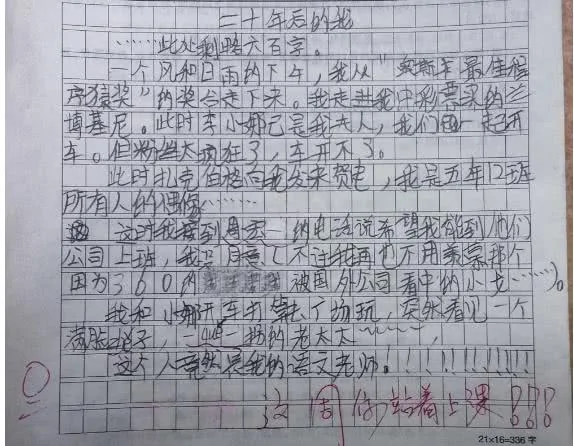 二十年后的我
……此处剩略六百字。
一个风和日雨的下午，我从"奥斯卡最佳程
序猿奖"的奖台走下来。我走进我中彩票来的兰
博基尼。此时李小娜已是我夫人，我们一起开
车。但粉丝太疯狂了，车开不了。
此时扎克伯格向我发来贺电，我是五年12班
所有人的偶像………
这时我接到 的电话说希望我能到他们
公司上班，我 不过我再也不用羡慕那个
因为360的 被国外公司看中的小 ……)。
我和小娜开车 去广场玩，突然看见一个
满脸 子，一 一 的老太太~~~~~，
这个人竟然是我的语文老师！！！！！！！！！！！
0
这周你站着上课！！！
21×16=336字